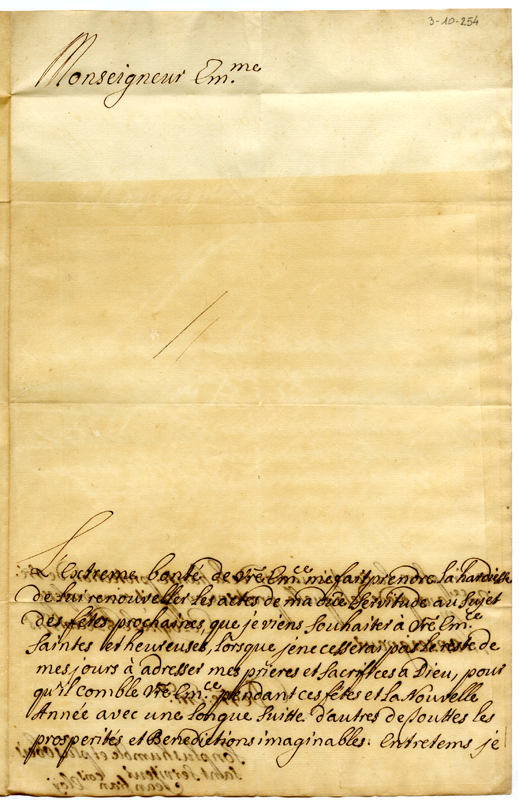 3-10-254
Monseigneur Em.me
L'Extreme bonté de Vrē Em.ce me fait prendre la hardiesse
de lui renouveller les actes de ma Servitude au Sujet
des fêtes prochaines, que je viens Souhaiter à Vrē Em.ce
Saintes et heureuses, lorsque je ne cesserai pas le reste de
mes jours à adresser mes prieres et Sacrifices à Dieu, pour
qu'il comble Vrē Em.ce pendant ces fêtes et la Nouvelle
Année avec une longue Suitte d'autres de touttes les
prosperités et Benedictions imaginables: Entretems je